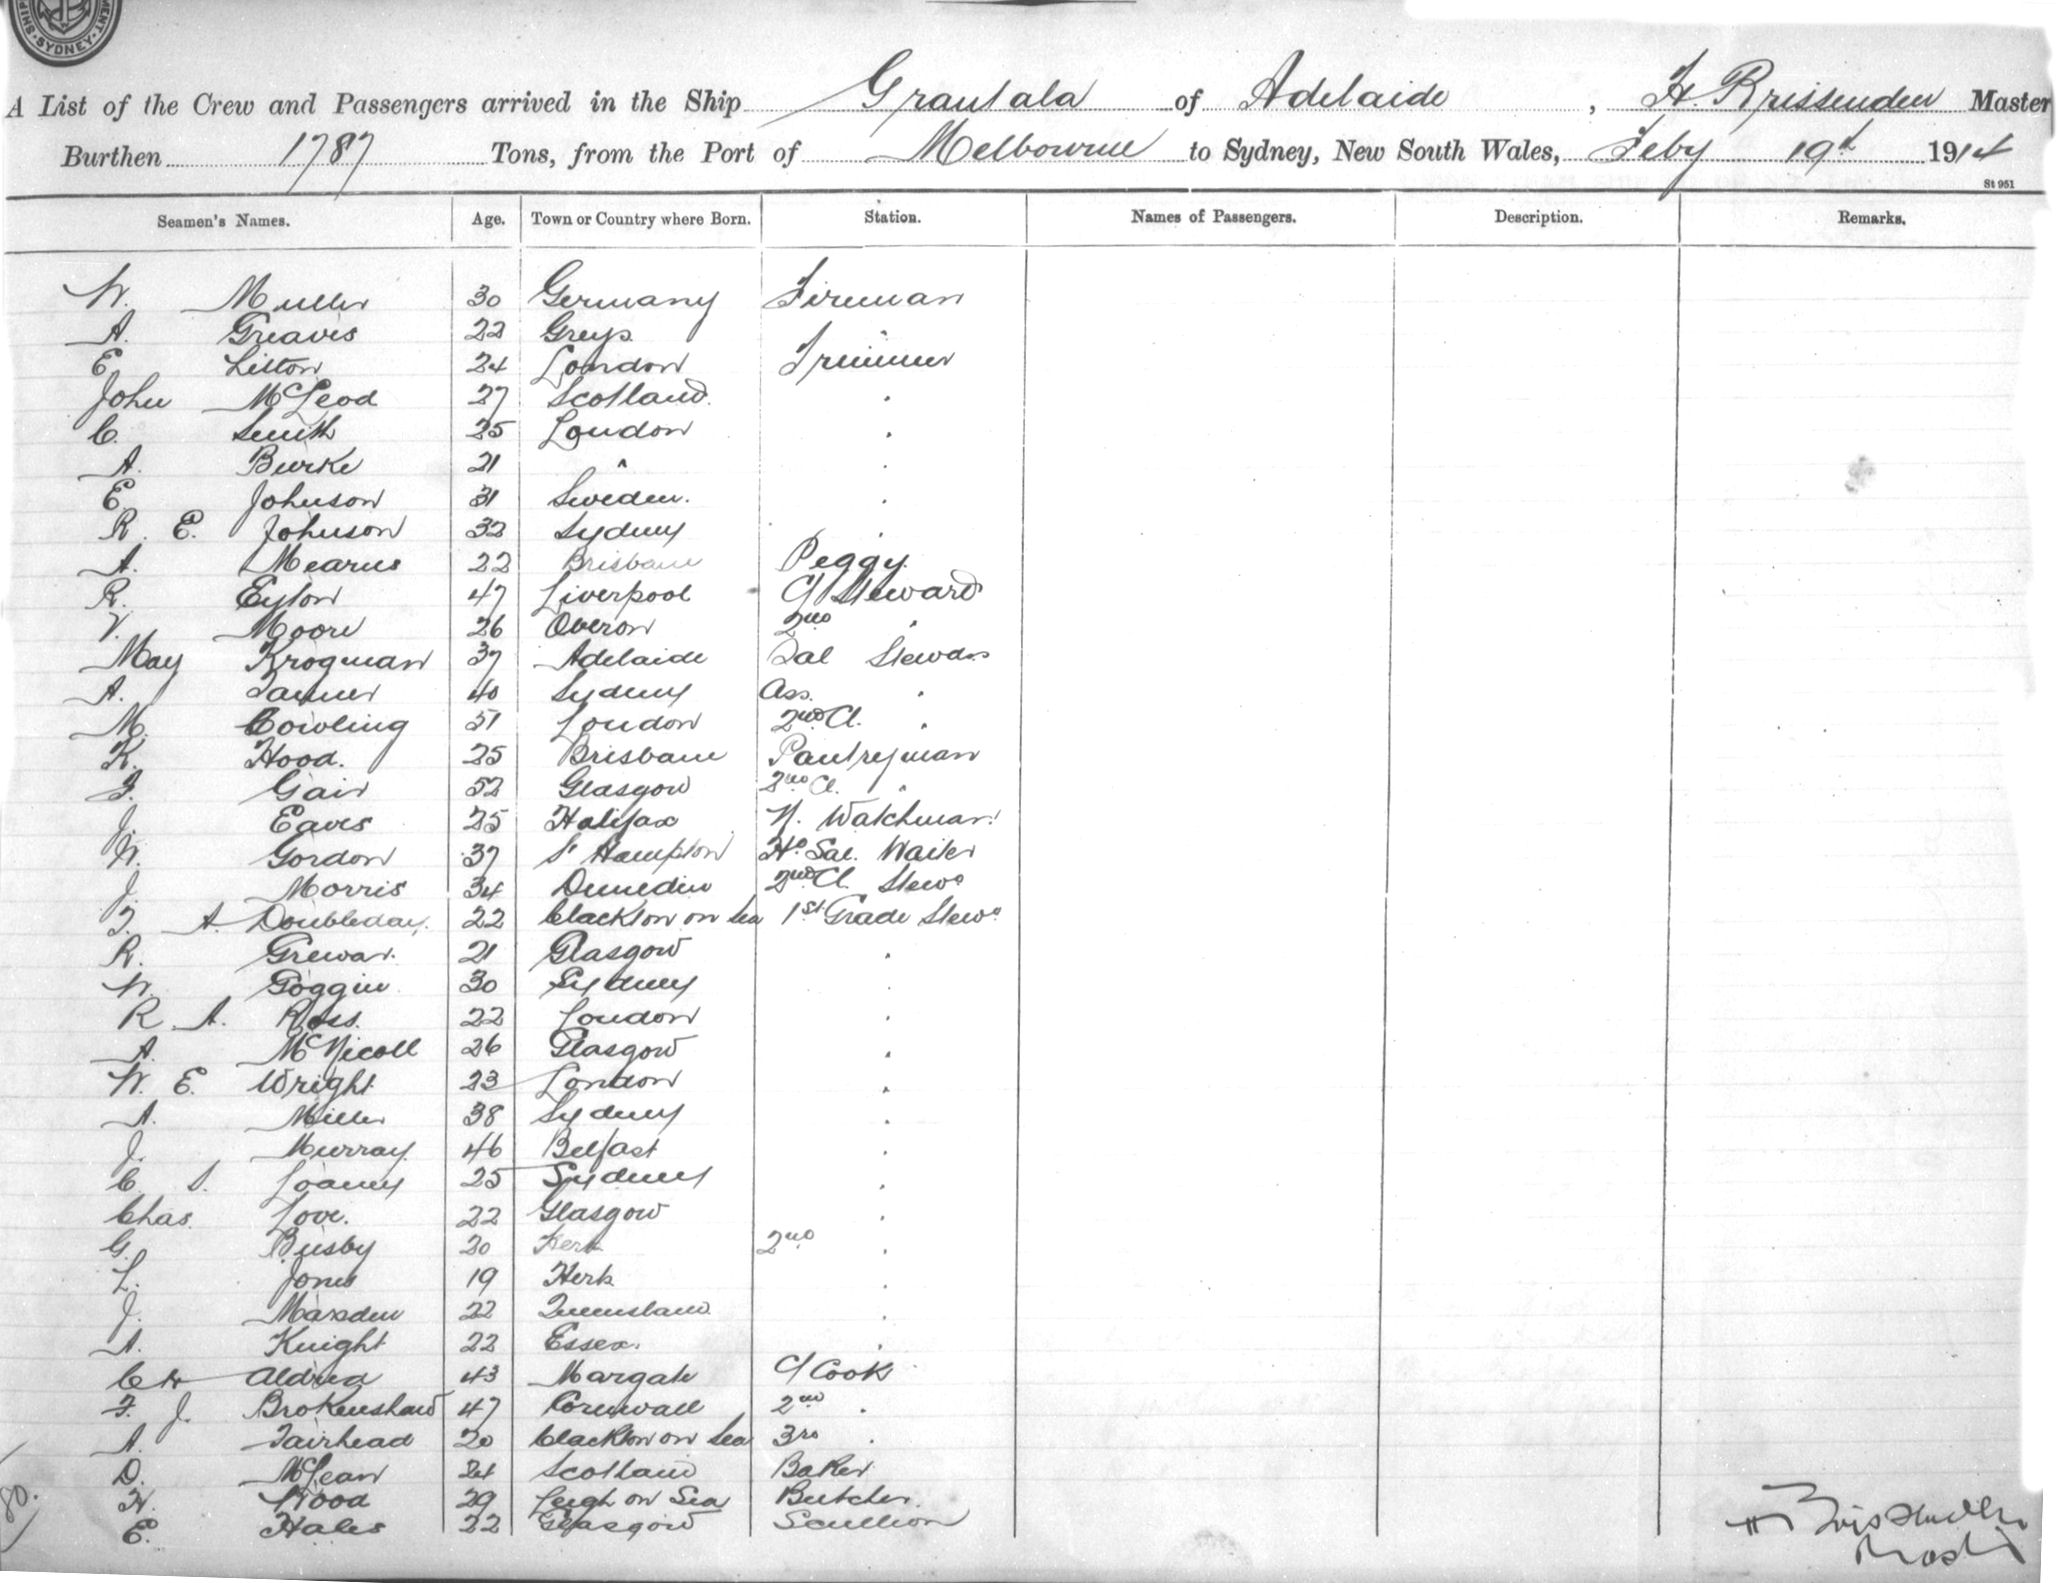 SYDNEY
A List of the Crew and Passengers arrived in the Ship Grantala of Adelaide, H. Brissenden Master
Burthen 1787 Tons, from the Port of Melbourne to Sydney, New South Wales, Feby 19th 1914
St 951
Seamen's Names. Age. Town or Country where Born. Station. Names of Passengers. Description. Remarks.
W. Muller 30 Germany Fireman
A. Greaves 22 Greys "
E. Liston 24 London Trimmer
John McLeod 27 Scotland "
C. Smith 25 London "
A. Burke 21 " "
E. Johnson 31 Sweden. "
R. E. Johnson 32 Sydney "
A. Mearns 22 Brisbane Peggy.
R. Eyton 47 Liverpool C/ Steward
V. Moore 26 2nd "
May Krogman 37 Adelaide Sal Stewdss
A. 40 Sydney Ass. "
M. Cowling 51 London 2nd Cl. "
K. Hood. 25 Brisbane Pantryman
F. Gair 52 Glasgow 2nd Cl. "
J. Eaves 25 Halifax N. Watchman
W. Gordon 37 S' Hampton Hd Sal. Waiter
J. Morris 34 Dunedin 2nd Cl. Stewd
F. A. Doubleday. 22 Clackton on Sea 1st Grade Stewd
R. Grewar. 21 Glasgow "
W. Goggin 30 Sydney "
R. A. Ross. 22 London "
A. McNicoll 26 Glasgow "
W. E. Wright 23 London "
A. Miller 38 Sydney "
J. Murray. 46 Belfast "
C. S. Loaney 25 Sydney "
Chas. Love. 22 Glasgow "
G. Busby 20 2nd "
L. Jones 19 "
J. Marsden 22 Queensland. "
A. Knight 22 Essex. "
C H Aldred 43 Margate C/ Cook
F. J. Brokenshaw 47 Cornwall 2nd "
A. Fairhead 20 Clackton on Sea 3rd "
D. McLean 24 Scotland Baker
H. Wood 29 Leigh on Sea Butcher.
E. Hales 22 Glasgow Scullion
80.
H Brissenden
Master